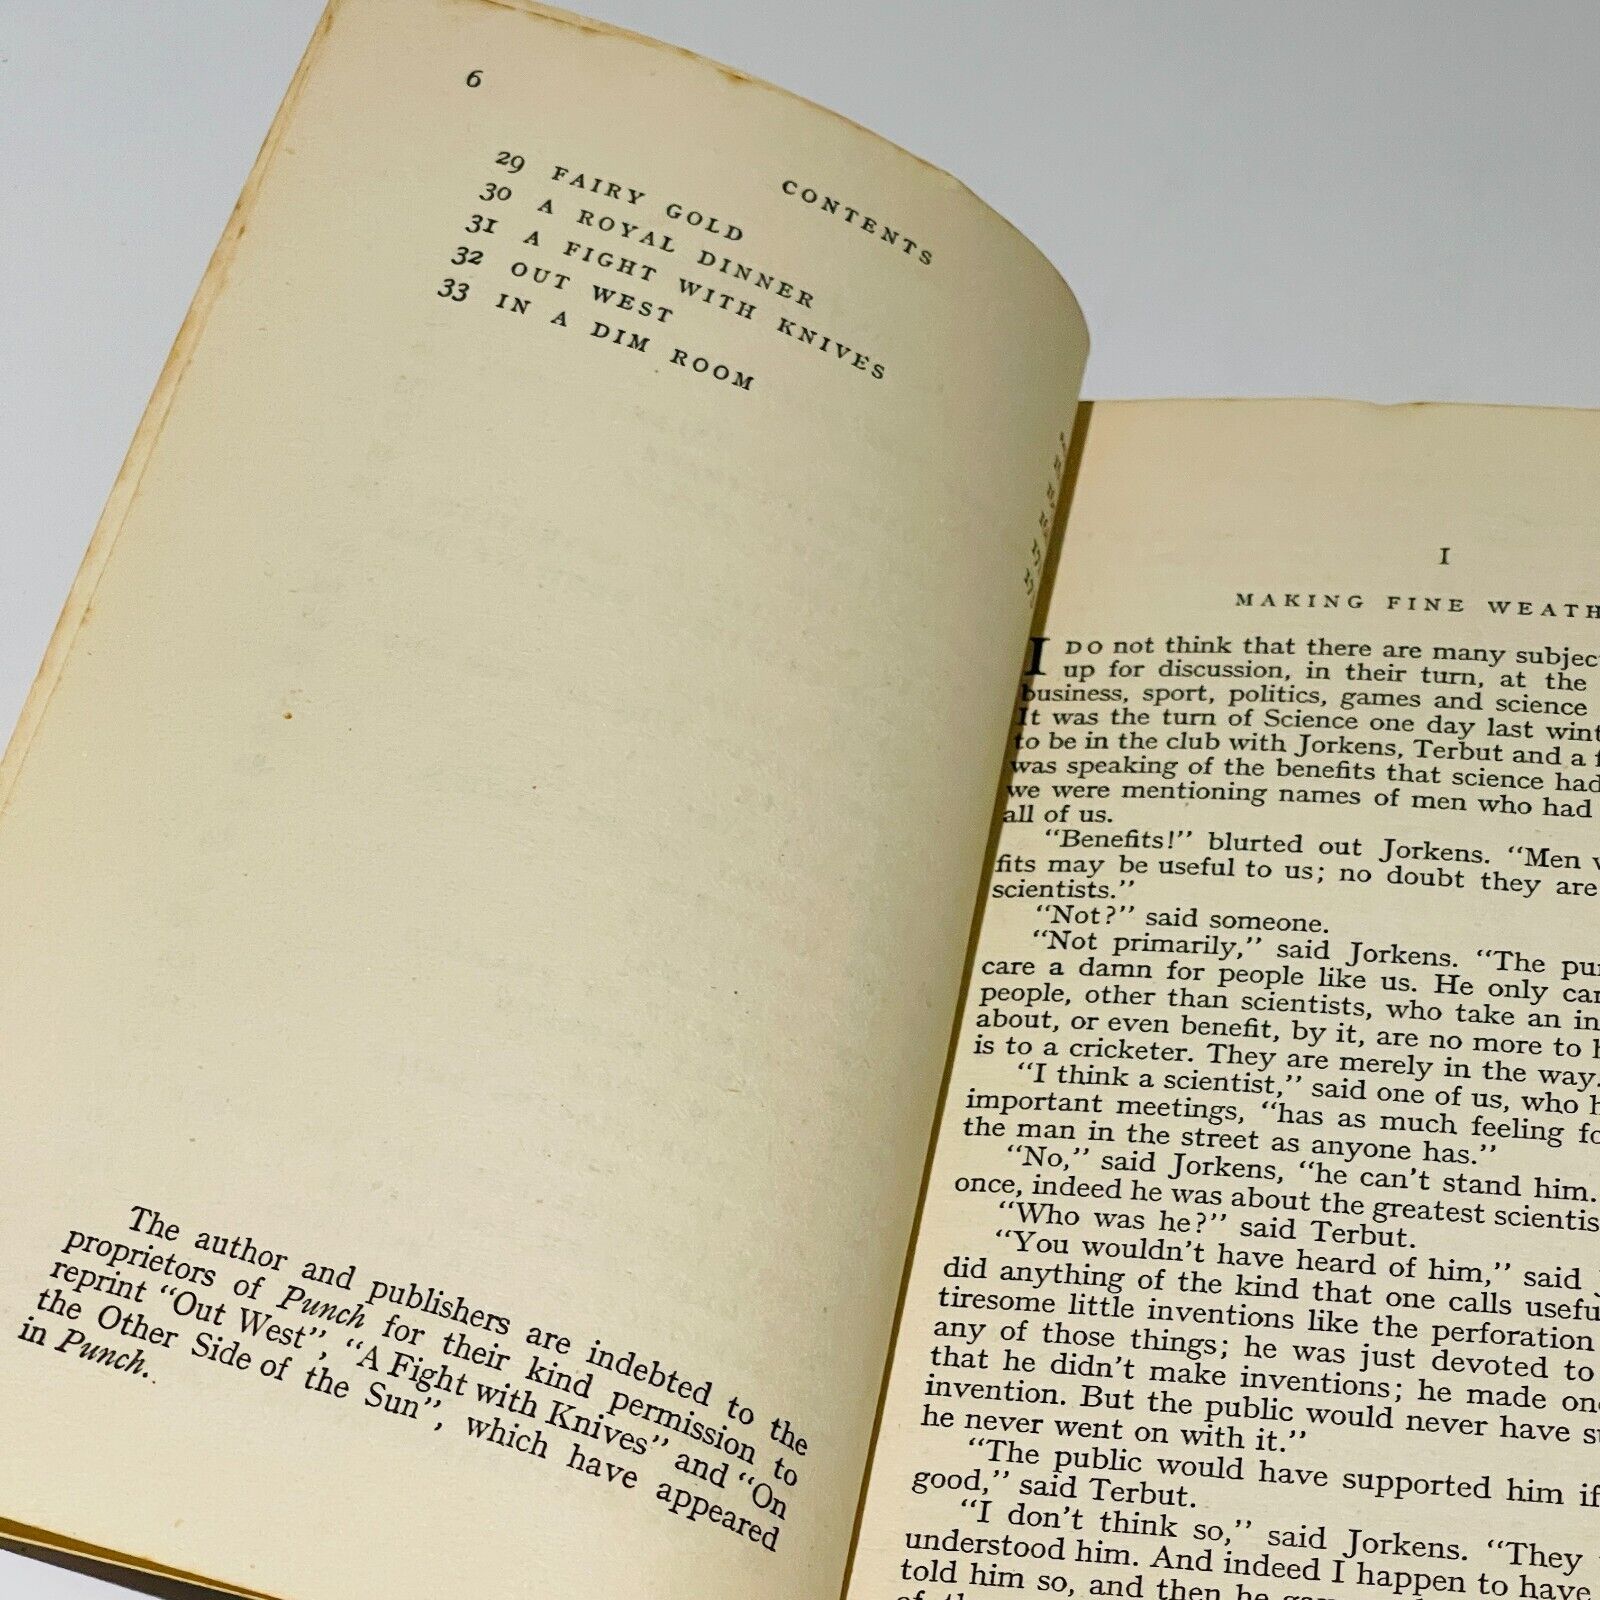 6
CONTENTS
29 FAIRY GOLD
30 A ROYAL DINNER
31 A FIGHT WITH KNIVES
32 OUT WEST
33 IN A DIM ROOM
The author and publishers are indebted to the
proprietors of Punch for their kind permission to
reprint “Out West”, “A Fight with Knives” and “On
the Other Side of the Sun”, which have appeared
in Punch.
I
MAKING FINE WEATH
I DO not think that there are many subjec
up for discussion, in their turn, at the
business, sport, politics, games and science
It was the turn of Science one day last wint
to be in the club with Jorkens, Terbut and a f
was speaking of the benefits that science had
we were mentioning names of men who had
all of us.
“Benefits!” blurted out Jorkens. “Men
fits may be useful to us; no doubt they are
scientists.”
“Not?” said someone.
“Not primarily,” said Jorkens. “The pu
care a damn for people like us. He only car
people, other than scientists, who take an in
about, or even benefit, by it, are no more to h
is to a cricketer. They are merely in the way.
“I think a scientist,” said one of us, who h
important meetings, “has as much feeling fo
the man in the street as anyone has.”
“No,” said Jorkens, “he can’t stand him.
once, indeed he was about the greatest scientis
“Who was he?” said Terbut.
“You wouldn’t have heard of him,” said
did anything of the kind that one calls usefu
tiresome little inventions like the perforation
any of those things; he was just devoted to
that he didn’t make inventions; he made on
invention. But the public would never have s
he never went on with it.”
“The public would have supported him if
good,” said Terbut.
“I don’t think so,” said Jorkens. “They
understood him. And indeed I happen to have
told him so, and then he